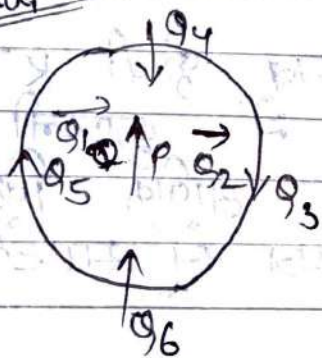 Q4
Q1 P Q2
Q5 Q3
Q6